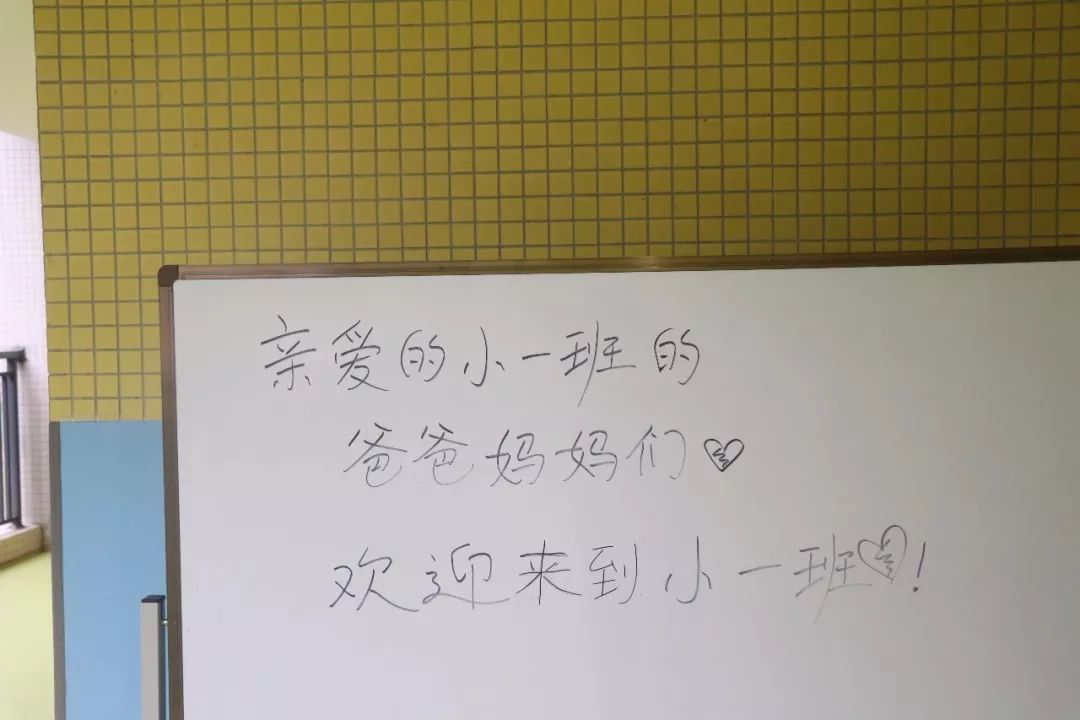 亲爱的小一班的
爸爸妈妈们♡
欢迎来到小一班♡!